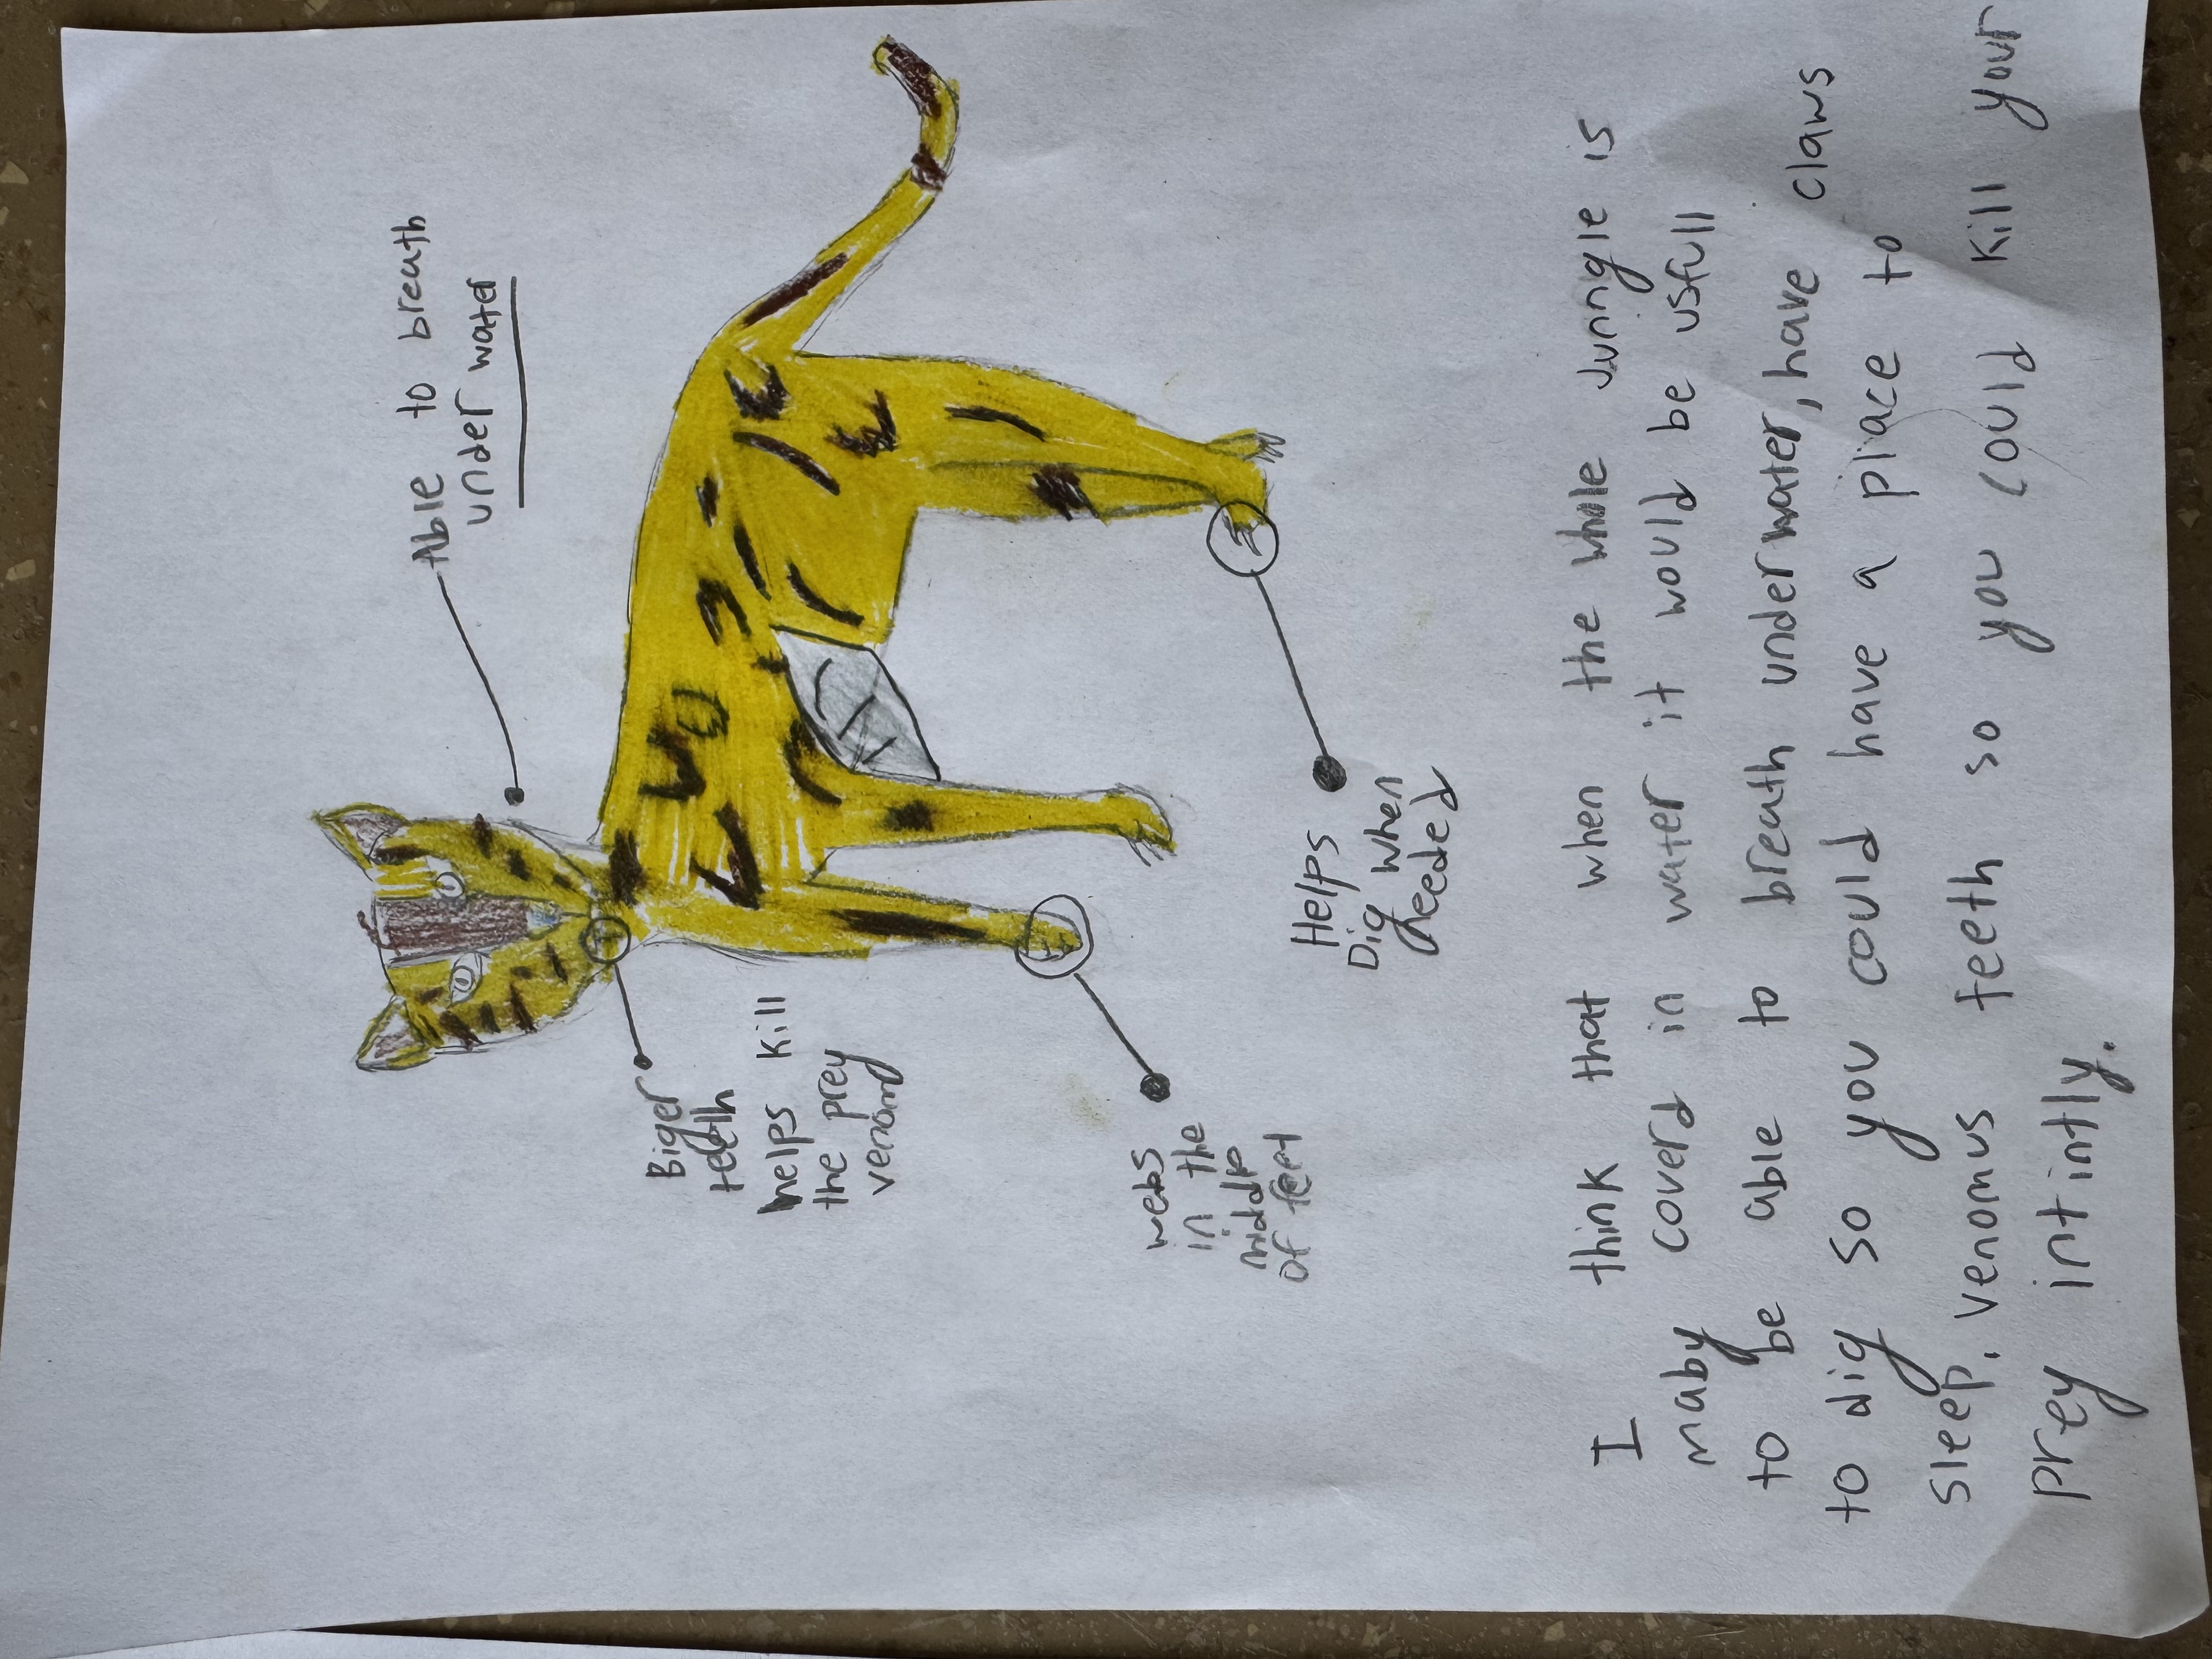 Able to breath
under water
Biger
teeth
helps kill
the prey
venom
webs
in the
middle
of feet
Helps
Dig when
needed
I think that when the whole Jungle is
maby coverd in water it would be usfull
to be able to breath under water, have claws
to dig so you could have a place to
sleep, venomus teeth so you could kill your
prey intintly.